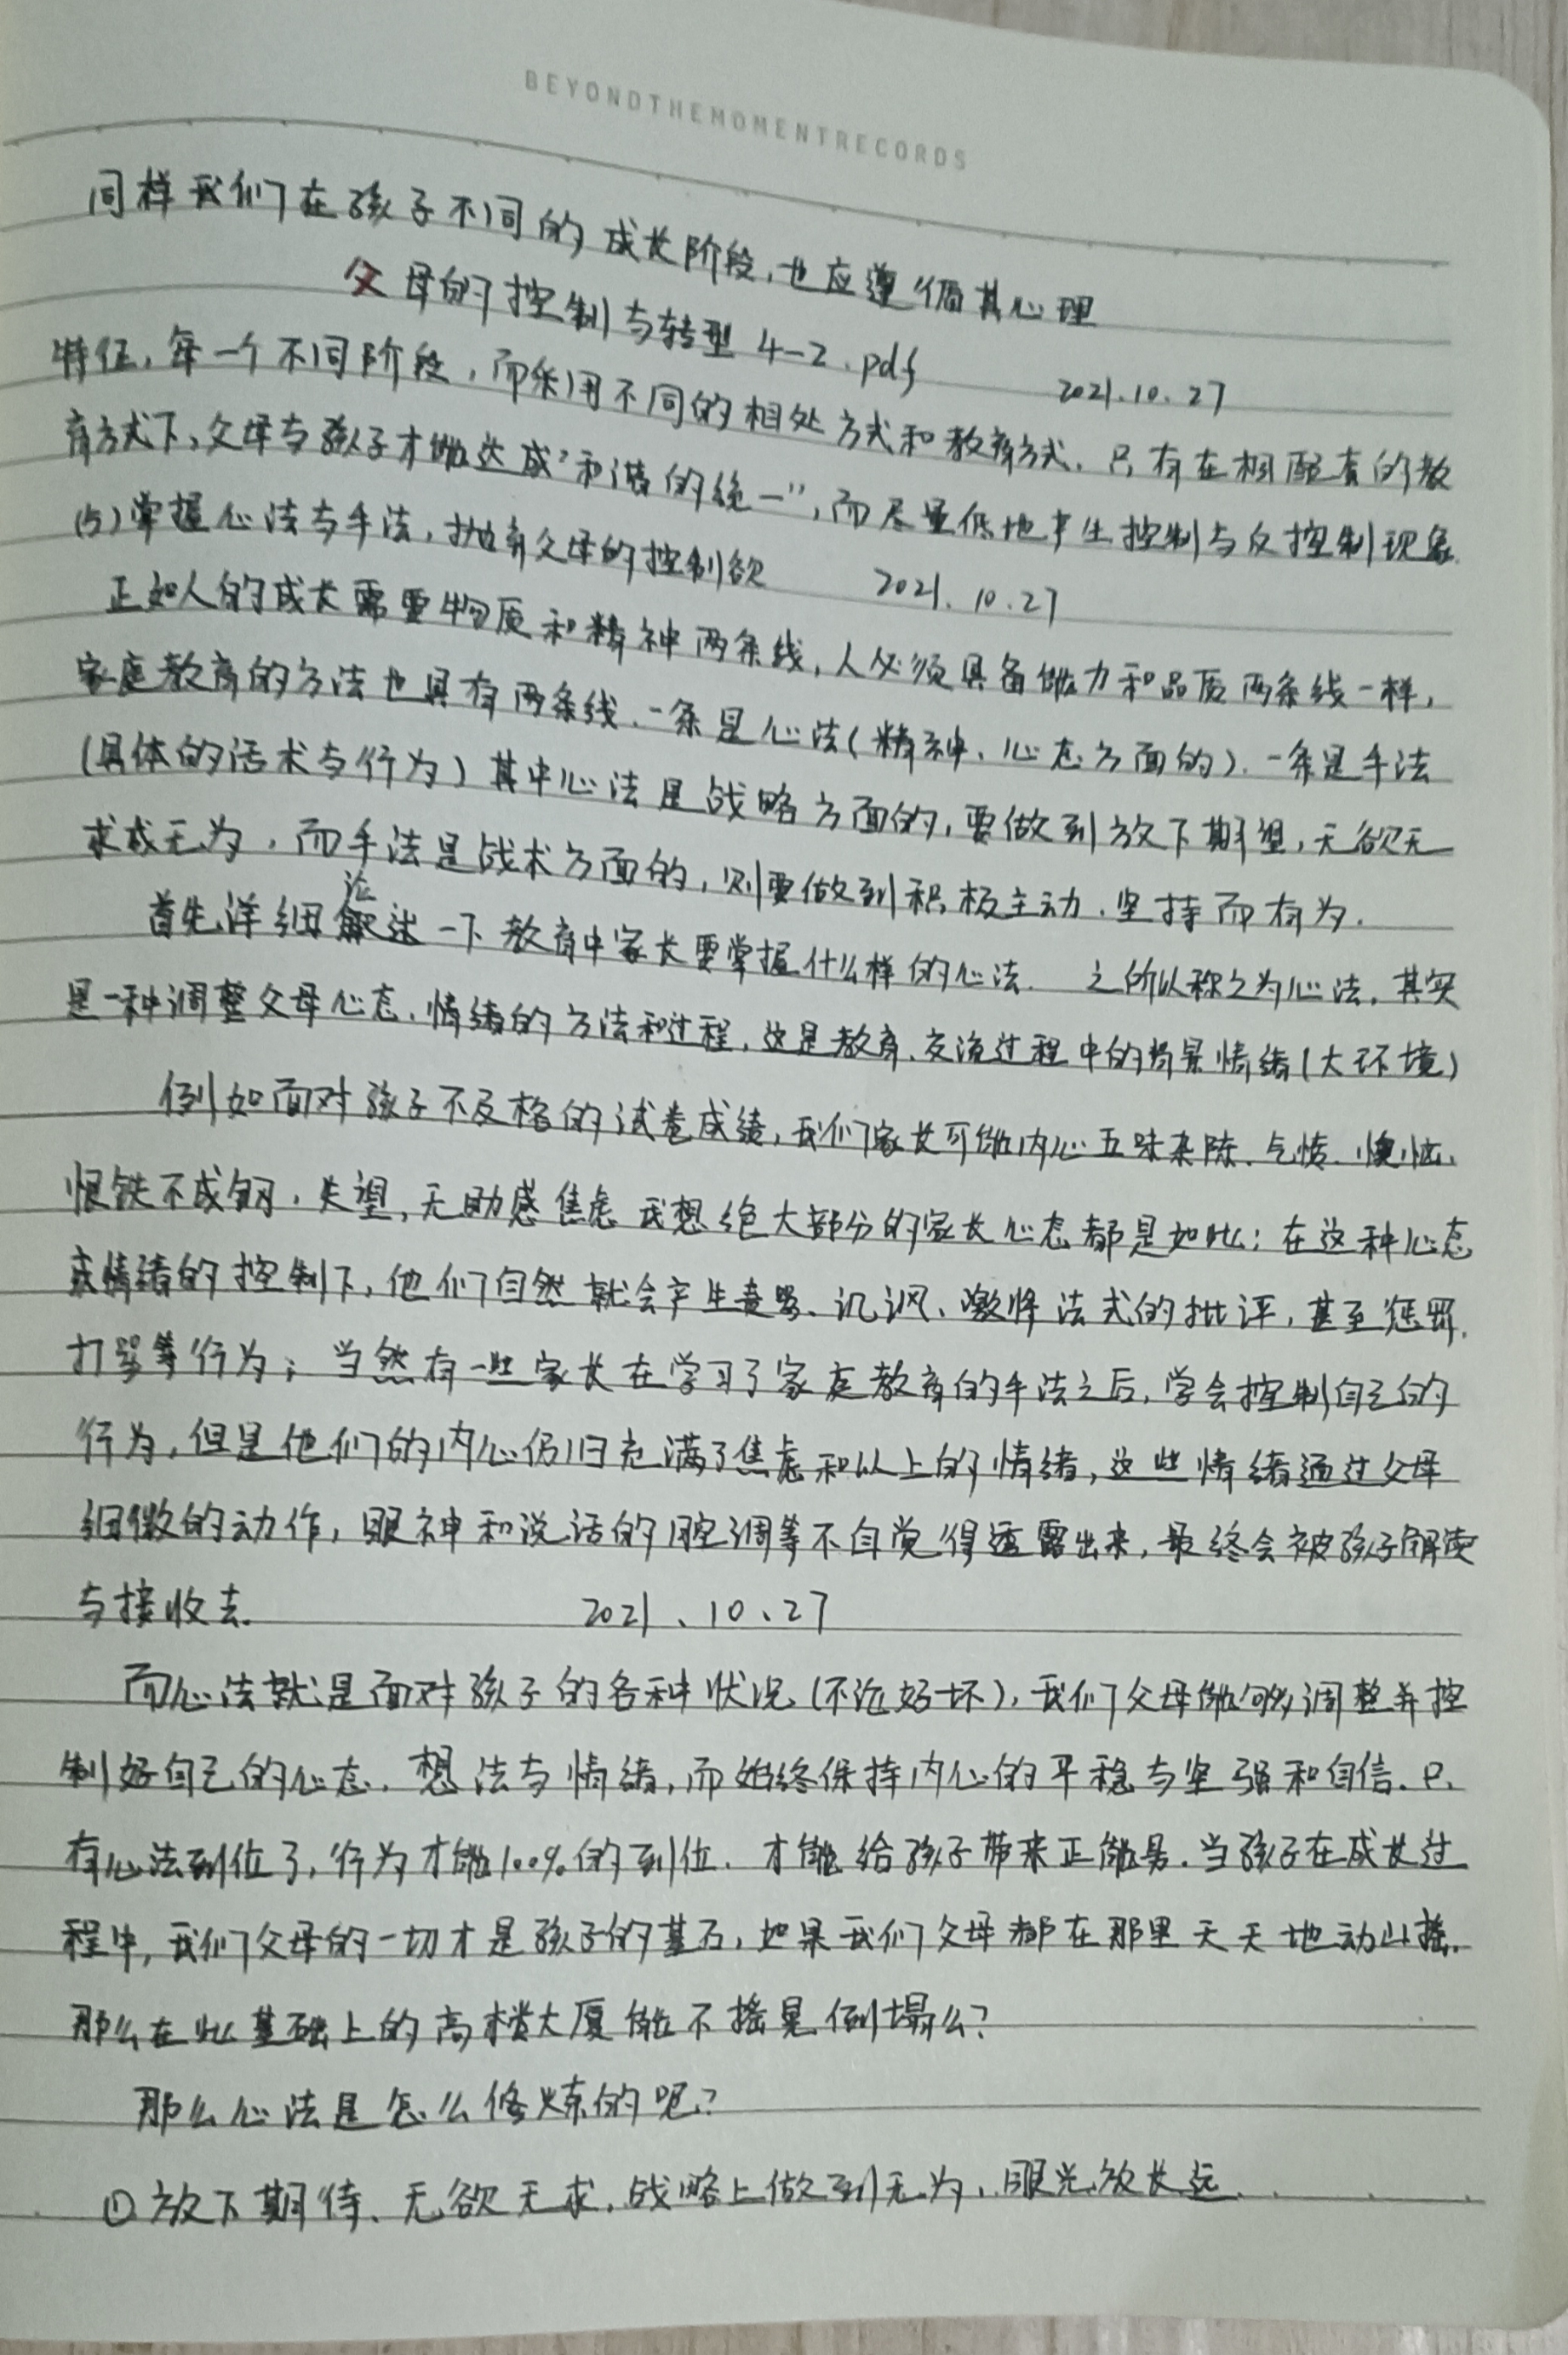 BEYONDTHEMOMENTRECORDS
同样我们在孩子不同的成长阶段,也应遵循其心理
父母的控制与转型 4-2.pdf 2021.10.27
特征,每一个不同阶段,而采用不同的相处方式和教育方式.只有在相配套的教
育方式下,父母与孩子才能达成"和谐的统一",而尽量低地产生控制与反控制现象.
(5)掌握心法与手法,抛弃父母的控制欲 2021.10.27
正如人的成长需要物质和精神两条线,人必须具备能力和品质两条线一样,
家庭教育的方法也具有两条线.一条是心法(精神、心态方面的).一条是手法
(具体的话术与行为)其中心法是战略方面的,要做到放下期望,无欲无
求或无为,而手法是战术方面的,则要做到积极主动、坚持而有为.
首先详细论述一下教育中家长要掌握什么样的心法. 之所以称之为心法,其实
是一种调整父母心态、情绪的方法和过程,这是教育、交流过程中的背景情绪(大环境)
例如面对孩子不及格的试卷成绩,我们家长可能内心五味杂陈、气愤、懊恼、
恨铁不成钢,失望,无助感焦虑 我想绝大部分的家长心态都是如此;在这种心态
或情绪的控制下,他们自然就会产生责骂、讥讽、激将法式的批评,甚至惩罚,
打骂等行为;当然有一些家长在学习了家庭教育的手法之后,学会控制自己的
行为,但是他们的内心仍旧充满了焦虑和以上的情绪,这些情绪通过父母
细微的动作,眼神和说话的腔调等不自觉得透露出来,最终会被孩子解读
与接收去. 2021、10、27
而心法就是面对孩子的各种状况(不论好坏),我们父母能够调整并控
制好自己的心态、想法与情绪,而始终保持内心的平稳与坚强和自信.只
有心法到位了,行为才能100%的到位.才能给孩子带来正能量.当孩子在成长过
程中,我们父母的一切才是孩子的基石,如果我们父母都在那里天天地动山摇.
那么在此基础上的高楼大厦能不摇晃倒塌么?
那么心法是怎么修炼的呢?
①放下期待、无欲无求,战略上做到无为、眼光放长远.